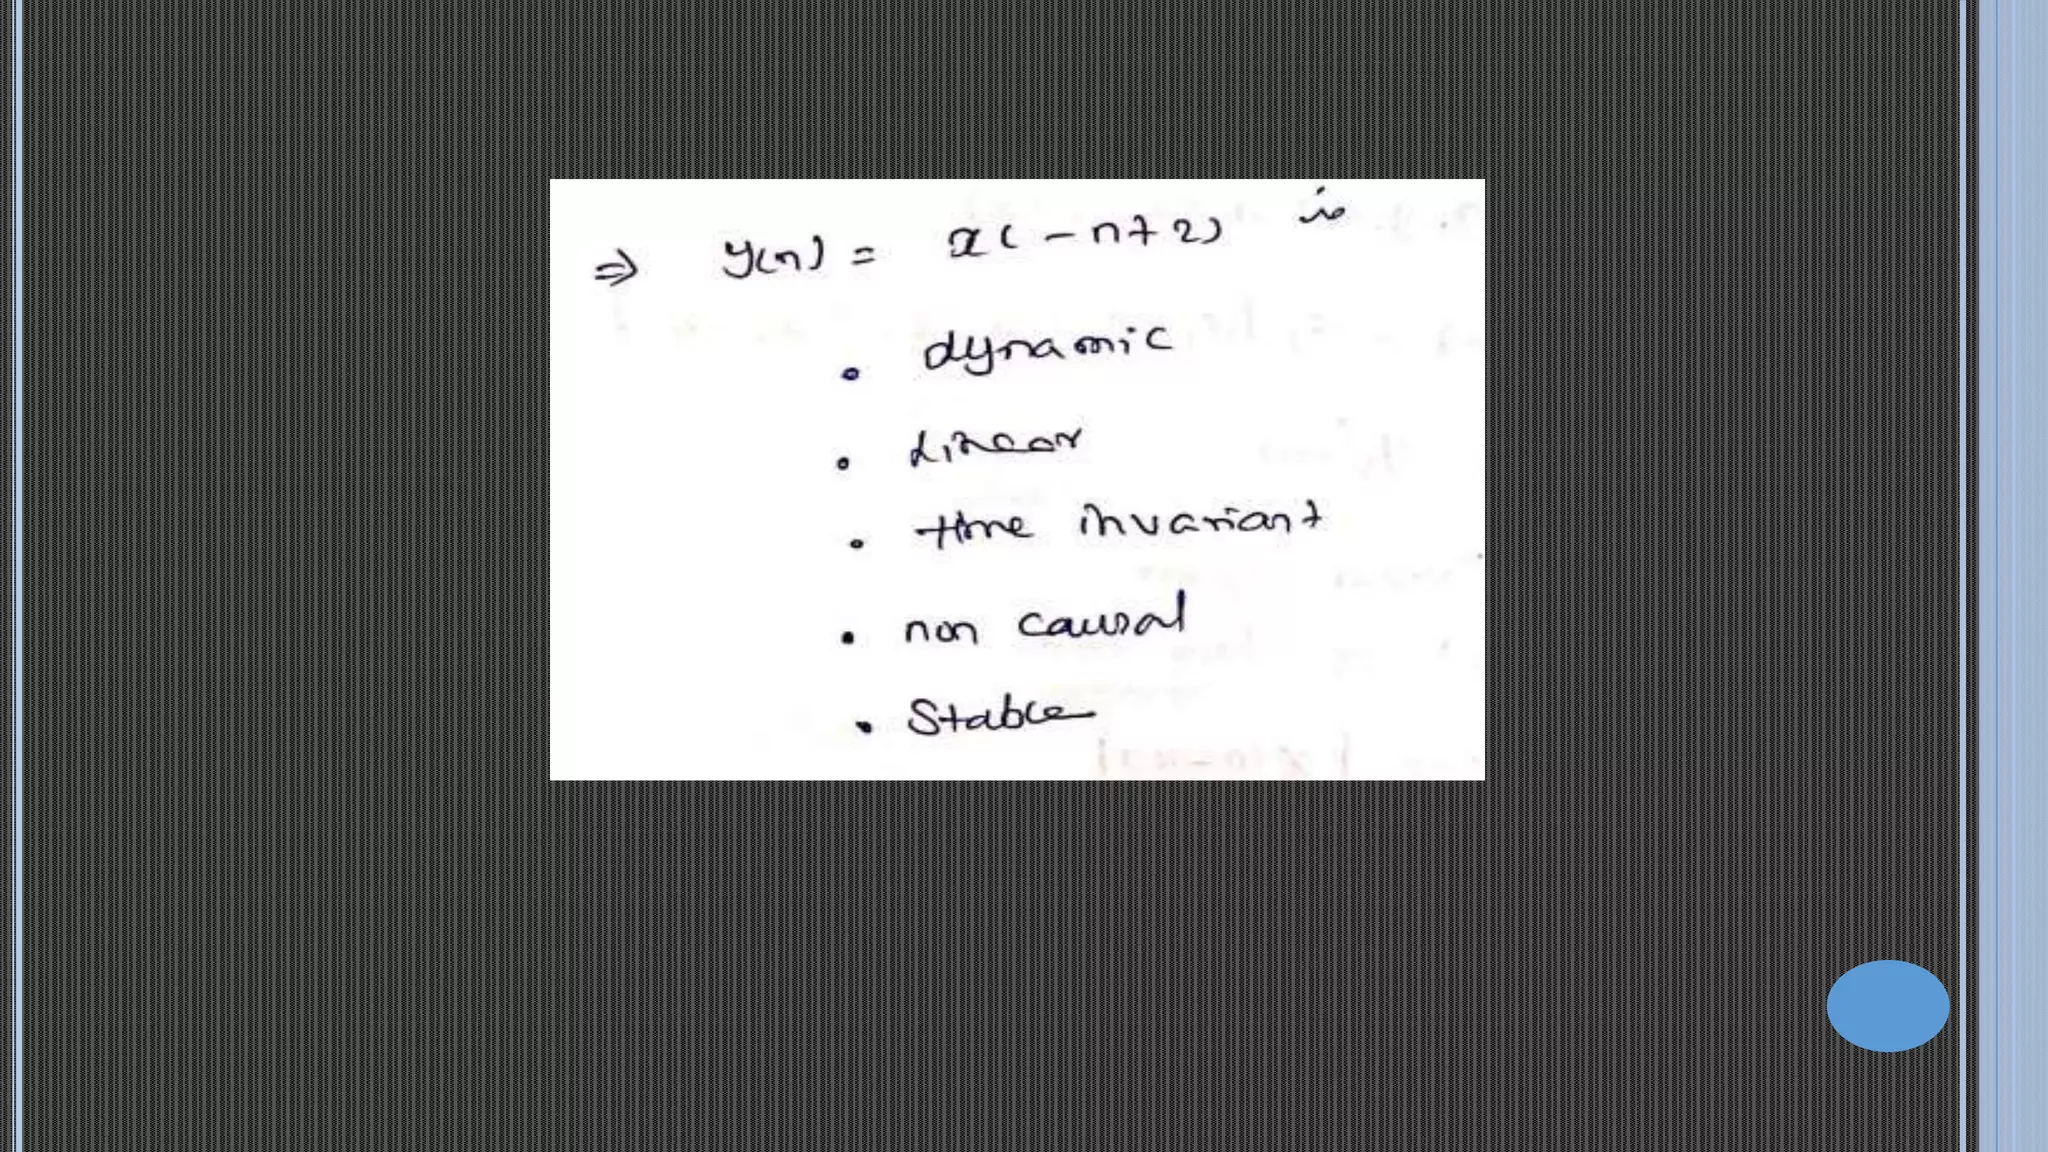 ⇒ y(n) = x(-n+2) is
• dynamic
• Linear
• time invariant
• non causal
• Stable